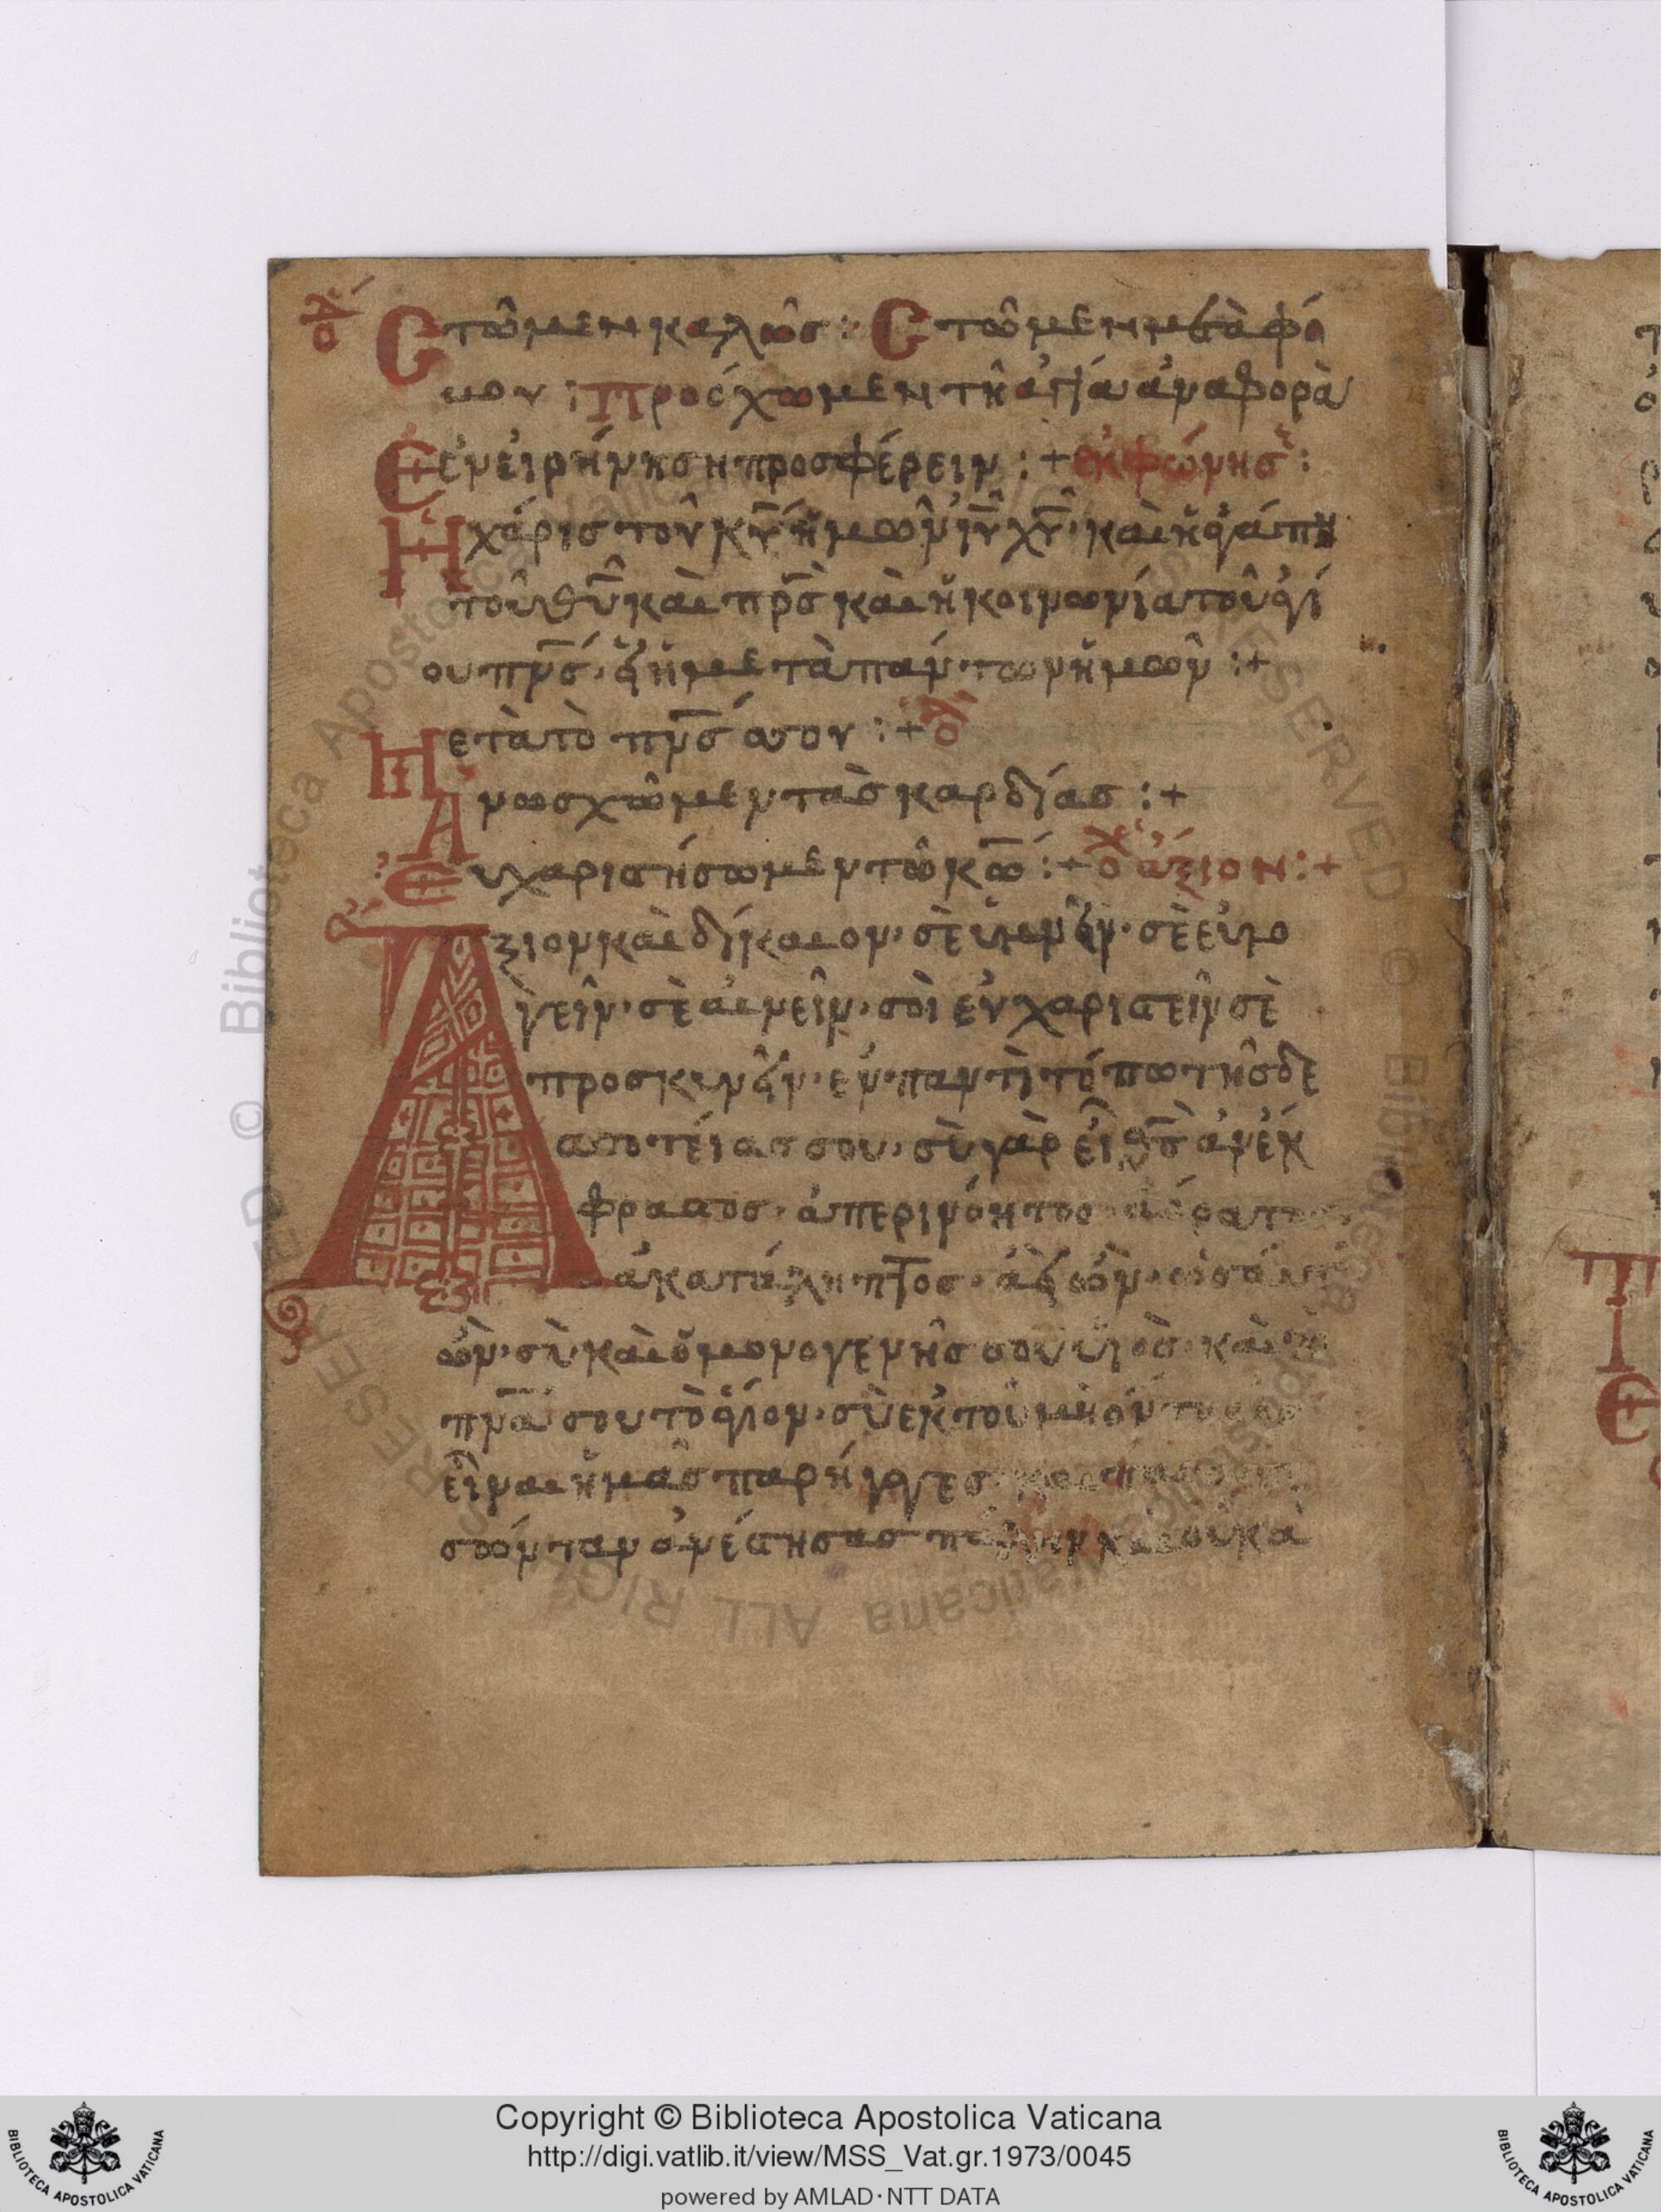 Στῶμεν καλῶς: Στῶμεν μετὰ φό
μου: Πρόσχωμεν τῆ ἁγία ἀναφορὰ
Ἐν εἰρήνη ση προσφέρειν :+ ἐκφώνησ:
Ἡ χάρις τοῦ κυ ἡμῶν ιυ χυ· καὶ ἡ ἀγάπη
τοῦ θυ καὶ πρς καὶ ἡ κοινωνία τοῦ ἁγί
ου πνς· εἴη μετὰ πάντων ἡμῶν :+
Μετὰ τὸ πνς σου :+ ὁ λ
Ἄνω σχῶμεν τὰς καρδίας :+
Εὐχαριστήσωμεν τῶ κω :+ ὁ λ ἄξιον :+
Ἄξιον καὶ δίκαιον· σὲ ὑμνεῖν· σὲ εὐλο
γεῖν· σὲ αἰνεῖν· σοὶ εὐχαριστεῖν σὲ
προσκυνεῖν· ἐν παντὶ τόπω τῆς δε
σποτείας σου· σὺ γὰρ εἶ θς ἀνέκ
φραστος· ἀπερινόητος ἀόρατος
ἀκατάληπτος· ἀεὶ ὢν· ὡσαύτ
ὢν· σὺ καὶ ὁ μονογενής σου υἱὸς· καὶ τὸ
πνα σου τὸ ἅγιον· σὺ ἐκ τοῦ μὴ ὄντος εἰς
εἶναι ἡμᾶς παρήγαγες καὶ παραπε
σόντας ἀνέστησας πάλιν καὶ οὐκ ἀ
Copyright © Biblioteca Apostolica Vaticana
http://digi.vatlib.it/view/MSS_Vat.gr.1973/0045
powered by AMLAD·NTT DATA
BIBLIOTECA APOSTOLICA VATICANA
BIBLIOTECA APOSTOLICA VATICANA